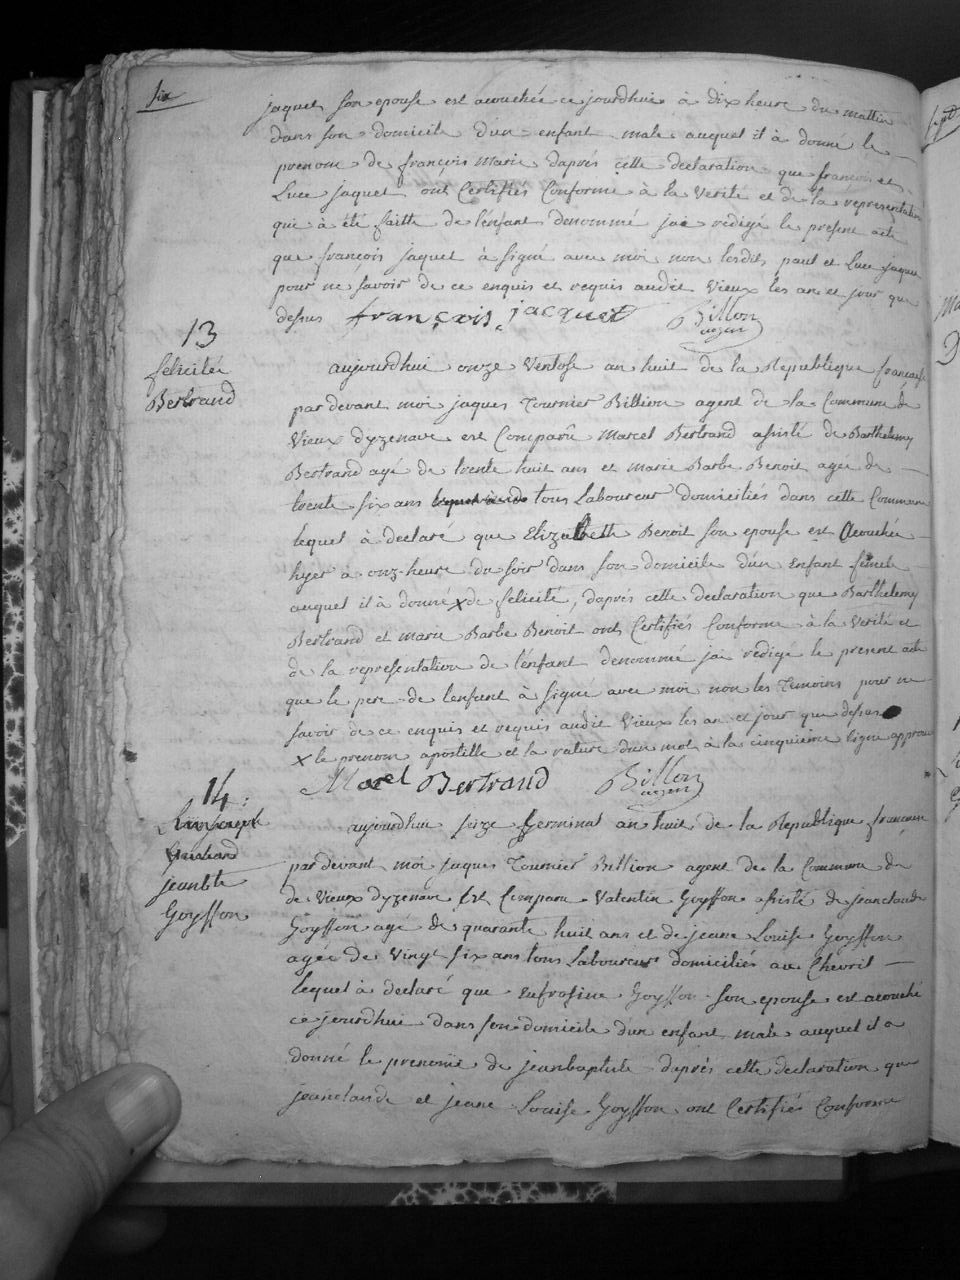 six
jaquet son epouse est acouchée ce jourdhui à dix heure du mattin
dans son domicile d'un enfant male auquel il à donné le
prenom de françois Marie daprés cette declaration que françois et
Luce jaquet ont Certifiés Conforme à la Verité et de la representation
qui à été faitte de l'enfant denommé jai redigé le present acte
que françois jaquet à signé avec moi non lesdits paul et Luce jaquet
pour ne savoir de ce enquis et requis audit Vieux les an et jour que
dessus françois jacquet Billon
agent
13
felicité
Bertrand
aujourdhui onze Ventose an huit de la Republique francaise
pardevant moi jaques Tournier Billion agent de la Commune de
Vieux dyzenave est Comparû Marcel Bertrand assisté de Barthelemy
Bertrand agé de trente huit ans et marie Barbe Benoit agée de
trente six ans tous Laboureur domiciliés dans cette Commune
lequel à declaré que Elizabeth Benoit son epouse est Acouchée
hyer à onz-heure du soir dans son domicile d'un Enfant femele
auquel il à donné x de felicité, daprés cette declaration que Barthelemy
Bertrand et marie Barbe Benoit onts Certifiés Conforme à la Verité et
de la representation de l'enfant denommé jai redigé le present acte
que le pere de lenfant à signé avec moi non les Temoins pour ne
savoir de ce enquis et requis audit Vieux les an et jour que dessus
x le prenom apostille et la rature dun mot à la cinquieme ligne approuvé
Marcel Bertrand Billon
agent
14
jeanbte
Goyffon
aujourdhui seize Germinal an huit de la Republique francaise
pardevant moi jaques Tournier Billion agent de la Commune de
de Vieux dyzenave Est Comparu Valentin Goyffon assisté de jeanclaude
Goyffon agé de quarante huit ans et de jeane Louise Goyffon
agée de Vingt six ans tous Laboureur domiciliés au Chevril
lequel à declaré que Eufrosine Goyffon son epouse est acouché
ce jourdhui dans son domicile d'un enfant male auquel il a
donné le prenome de jeanbaptiste daprés cette declaration que
jeanclaude et jeane Louise Goyffon ont Certifiés Conforme